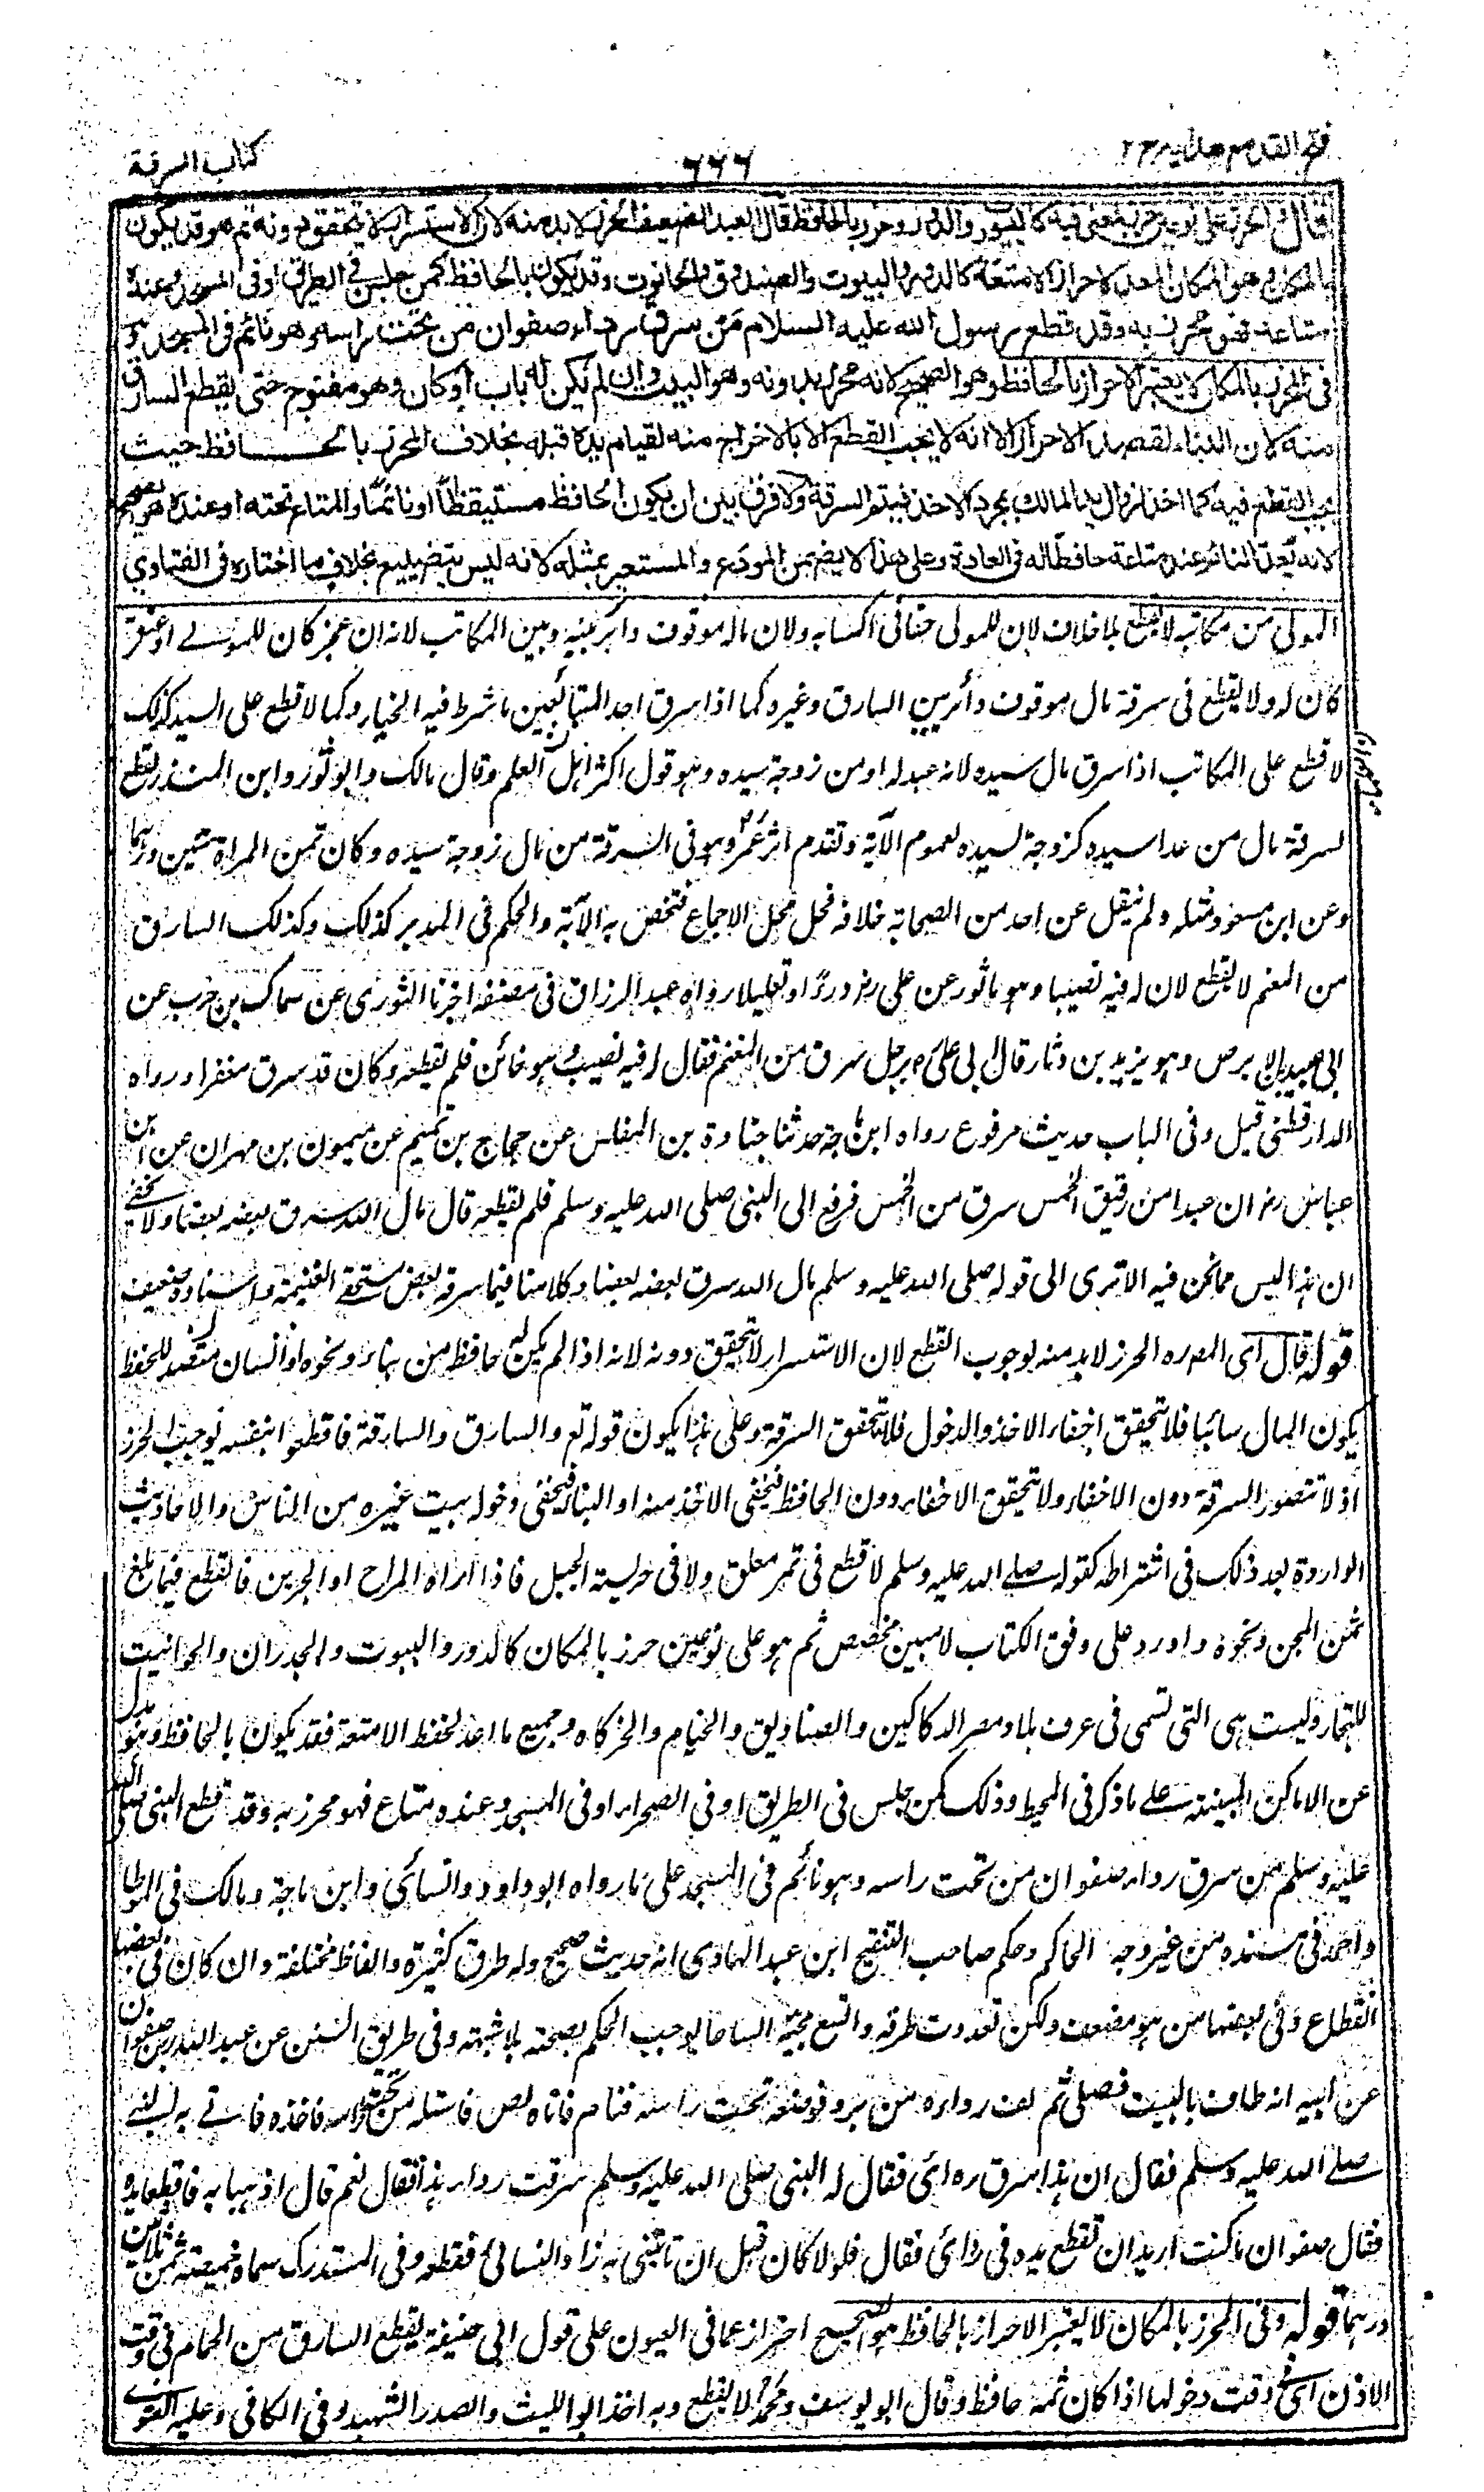 فتح القدير مع هدايه ج٢
٦٦٦
كتاب السرقة
قال والحرز على نوعين حرز لمعنى فيه كالبيوت والدور وحرز بالحافظ قال العبد الضعيف الحرز لابد منه لان الاستسرار لا يتحقق دونه ثم هو قد يكون
بالمكان وهو المكان المعد لاحراز الامتعة كالدور والبيوت والصندوق والحانوت وقد يكون بالحافظ كمن جلس فى الطريق او فى المسجد وعنده
متاعه فهو محرز به وقد قطع رسول الله عليه السلام من سرق رداء صفوان من تحت راسه وهو نائم فى المسجد و
فى المحرز بالمكان لا يعتبر الاحراز بالحافظ وهو الصحيح لانه محرز بدونه وهو البيت وان لم يكن له باب او كان وهو مفتوح حتى يقطع السارق
منه لان البناء لقصد الاحراز الا انه لا يجب القطع الا بالاخراج منه لقيام يده قبله بخلاف المحرز بالحافظ حيث
يجب القطع فيه كما اخذ لزوال يد المالك بمجرد الاخذ فيتم السرقة ولا فرق بين ان يكون الحافظ مستيقظا او نائما والمتاع تحته او عنده هو الصحيح
لانه يعد النائم عند متاعه حافظا له فى العادة وعلى هذا لا يضمن المودع والمستعير بمثله لانه ليس بتضييع بخلاف ما اختاره فى الفتاوى
المولى من مكاتبه لا يقطع بلا خلاف لان للمولى حقا فى اكسابه ولان ماله موقوف دائر بينه وبين المكاتب لانه ان عجز كان للمولے او عتق
كان له ولا يقطع فى سرقة مال موقوف دائر بين السارق وغيره كما اذا سرق احد المتبائعين ما شرط فيه الخيار وكما لا قطع على السيد كذلك
لا قطع على المكاتب اذا سرق مال سيده لانه عبد له او من زوجة سيده وهو قول اكثر اهل العلم وقال مالك وابو ثور وابن المنذر يقطع
لسرقة مال من عدا سيده كزوجة لسيده لعموم الآية وتقدم اثر عمر وهو فى السرقة من مال زوجة سيده وكان ثمن المراة ستين درهما
وعن ابن مسعود مثله ولم ينقل عن احد من الصحابة خلافه فحل محل الاجماع فتخص به الآية والحكم فى المدبر كذلك وكذلك السارق
من المغنم لا يقطع لان له فيه نصيبا وهو ماثور عن على رض درءا وتعليلا رواه عبد الرزاق فى مصنفه اخبرنا الثورى عن سماك بن حرب عن
ابى عبيد بن الابرص وهو يزيد بن دثار قال اتى على رض برجل سرق من المغنم فقال له فيه نصيب وهو خائن فلم يقطعه وكان قد سرق مغفرا ورواه
الدارقطنى قيل وفى الباب حديث مرفوع رواه ابن ماجة حدثنا جنادة بن المغلس عن حجاج بن تميم عن ميمون بن مهران عن ابن
عباس رض ان عبدا من رقيق الخمس سرق من الخمس فرفع الى النبى صلى الله عليه وسلم فلم يقطعه قال مال الله سرق بعضه بعضا ولا يخفى
ان هذا ليس مما نحن فيه الا ترى الى قوله صلى الله عليه وسلم مال الله سرق بعضه بعضا وكلامنا فيما سرقه بعض مستحقے الغنيمة واسناده ضعيف
قوله قال اى المص ره الحرز لابد منه لوجوب القطع لان الاستسرار لا يتحقق دونه لانه اذا لم يكن له حافظ من بناء ونحوه او انسان متصد للحفظ
يكون المال سائبا فلا يتحقق اخفاء الاخذ والدخول فلا تتحقق السرقة وعلى هذا يكون قوله تع والسارق والسارقة فاقطعوا بنفسه يوجب الحرز
اذ لا تتصور السرقة دون الاخفاء ولا يتحقق الاخفاء دون الحافظ فيخفى الاخذ منه او البناء فيخفى دخول بيت غيره من الناس والاحاديث
الواردة بعد ذلك فى اشتراطه كقوله صلے الله عليه وسلم لا قطع فى ثمر معلق ولا فى حريسة الجبل فاذا اواه المراح او الجرين فالقطع فيما بلغ
ثمن المجن ونحوه وارد على وفق الكتاب لا مبين مخصص ثم هو على نوعين حرز بالمكان كالدور والبيوت والجدران والحوانيت
للتجار وليست هى التى تسمى فى عرف بلاد مصر الدكاكين والصناديق والخيام والخركاه وجميع ما اعد لحفظ الامتعة فقد يكون بالحافظ وهو بدل
عن الاماكن المبنية على ما ذكر فى المحيط وذلك كمن جلس فى الطريق او فى الصحراء او فى المسجد وعنده متاع فهو محرز به وقد قطع النبى صلى الله
عليه وسلم من سرق رداء صفوان من تحت راسه وهو نائم فى المسجد على ما رواه ابو داود والنسائى وابن ماجة ومالك فى الموطا
واحمد فى مسنده من غير وجه الحاكم وحكم صاحب التنقيح ابن عبد الهادى انه حديث صحيح وله طرق كثيرة والفاظ مختلفة وان كان فى بعضها
انقطاع وفى بعضها من هو مضعف ولكن تعددت طرقه واتسع مجيئه اتساعا يوجب الحكم بصحته بلا شبهة وفى طريق السنن عن عبد الله بن صفوان
عن ابيه انه طاف بالبيت فصلى ثم لف رداءه من برد فوضعه تحت راسه فنام فاتاه لص فاستله من تحت راسه فاخذه فاتے به النبے
صلے الله عليه وسلم فقال ان هذا سرق رداى فقال له النبى صلى الله عليه وسلم سرقت رداء هذا فقال نعم قال اذهبا به فاقطعا يده
فقال صفوان ما كنت اريد ان تقطع يده فى ردائى فقال فلولا كان قبل ان تاتينى به زاد النسائى فقطعه وفى المستدرك سماه خميصة ثمن ثلاثين
درهما قوله وفى المحرز بالمكان لا يعتبر الاحراز بالحافظ هو الصحيح احتراز عما فى العيون على قول ابى حنيفة يقطع السارق من الحمام فى وقت
الاذن اى وقت دخولها اذا كان ثمه حافظ وقال ابو يوسف ومحمد لا يقطع وبه اخذ ابو الليث والصدر الشهيد وفى الكافى وعليه الفتوے